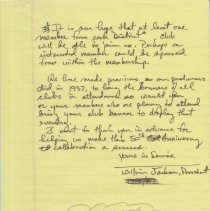 It is our hope that at least one
member from each District club
will be able to join us. Perhaps an
interested member could be sponsored
from within the membership.
We have made provisions, as our predecessors
did in 1937, to hang the banners of all
clubs in attendance so would you
or your members who are planning to attend
bring your club banner to display that
evening.
I want to thank you in advance for
helping us make this 50th Anniversary
celebration a success.
Yours in Service
Jackson, President